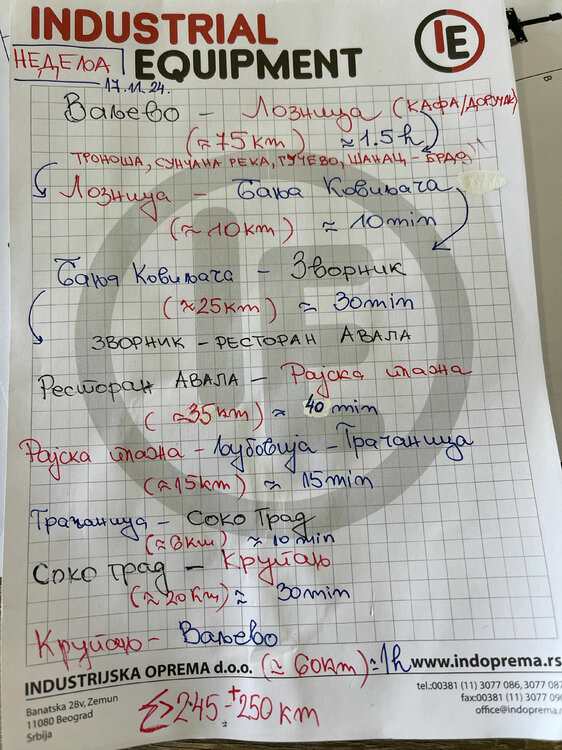 INDUSTRIAL
EQUIPMENT
IE
НЕДЕЉА
17.11.24.
Ваљево – Лозница (КАФА/ДОРУЧАК)
(≈75km) ≈1.5h
ТРОНОША, СУНЧАНА РЕКА, ГУЧЕВО, ШАНАЦ – БРДО
Лозница – Бања Ковиљача
(≈10km) ≈ 10min
Бања Ковиљача – Зворник
(≈25km) ≈ 30min
ЗВОРНИК – РЕСТОРАН АВАЛА
Ресторан АВАЛА – Рајска плажа
(≈35km) ≈ 40 min
Рајска плажа – Љубовија – Грачаница
(≈15km) ≈ 15min
Грачаница – СОКО ГРАД
(≈8km) ≈ 10min
СОКО ГРАД – Крупањ
(≈20km) ≈ 30min
Крупањ – Ваљево
(≈60km) ≈1h
INDUSTRIJSKA OPREMA d.o.o. www.indoprema.rs
Banatska 28v, Zemun
11080 Beograd
Srbija
tel.:00381 (11) 3077 086, 3077 087
fax:00381 (11) 3077 09
office@indoprema.r
Σ>245-+250km
B